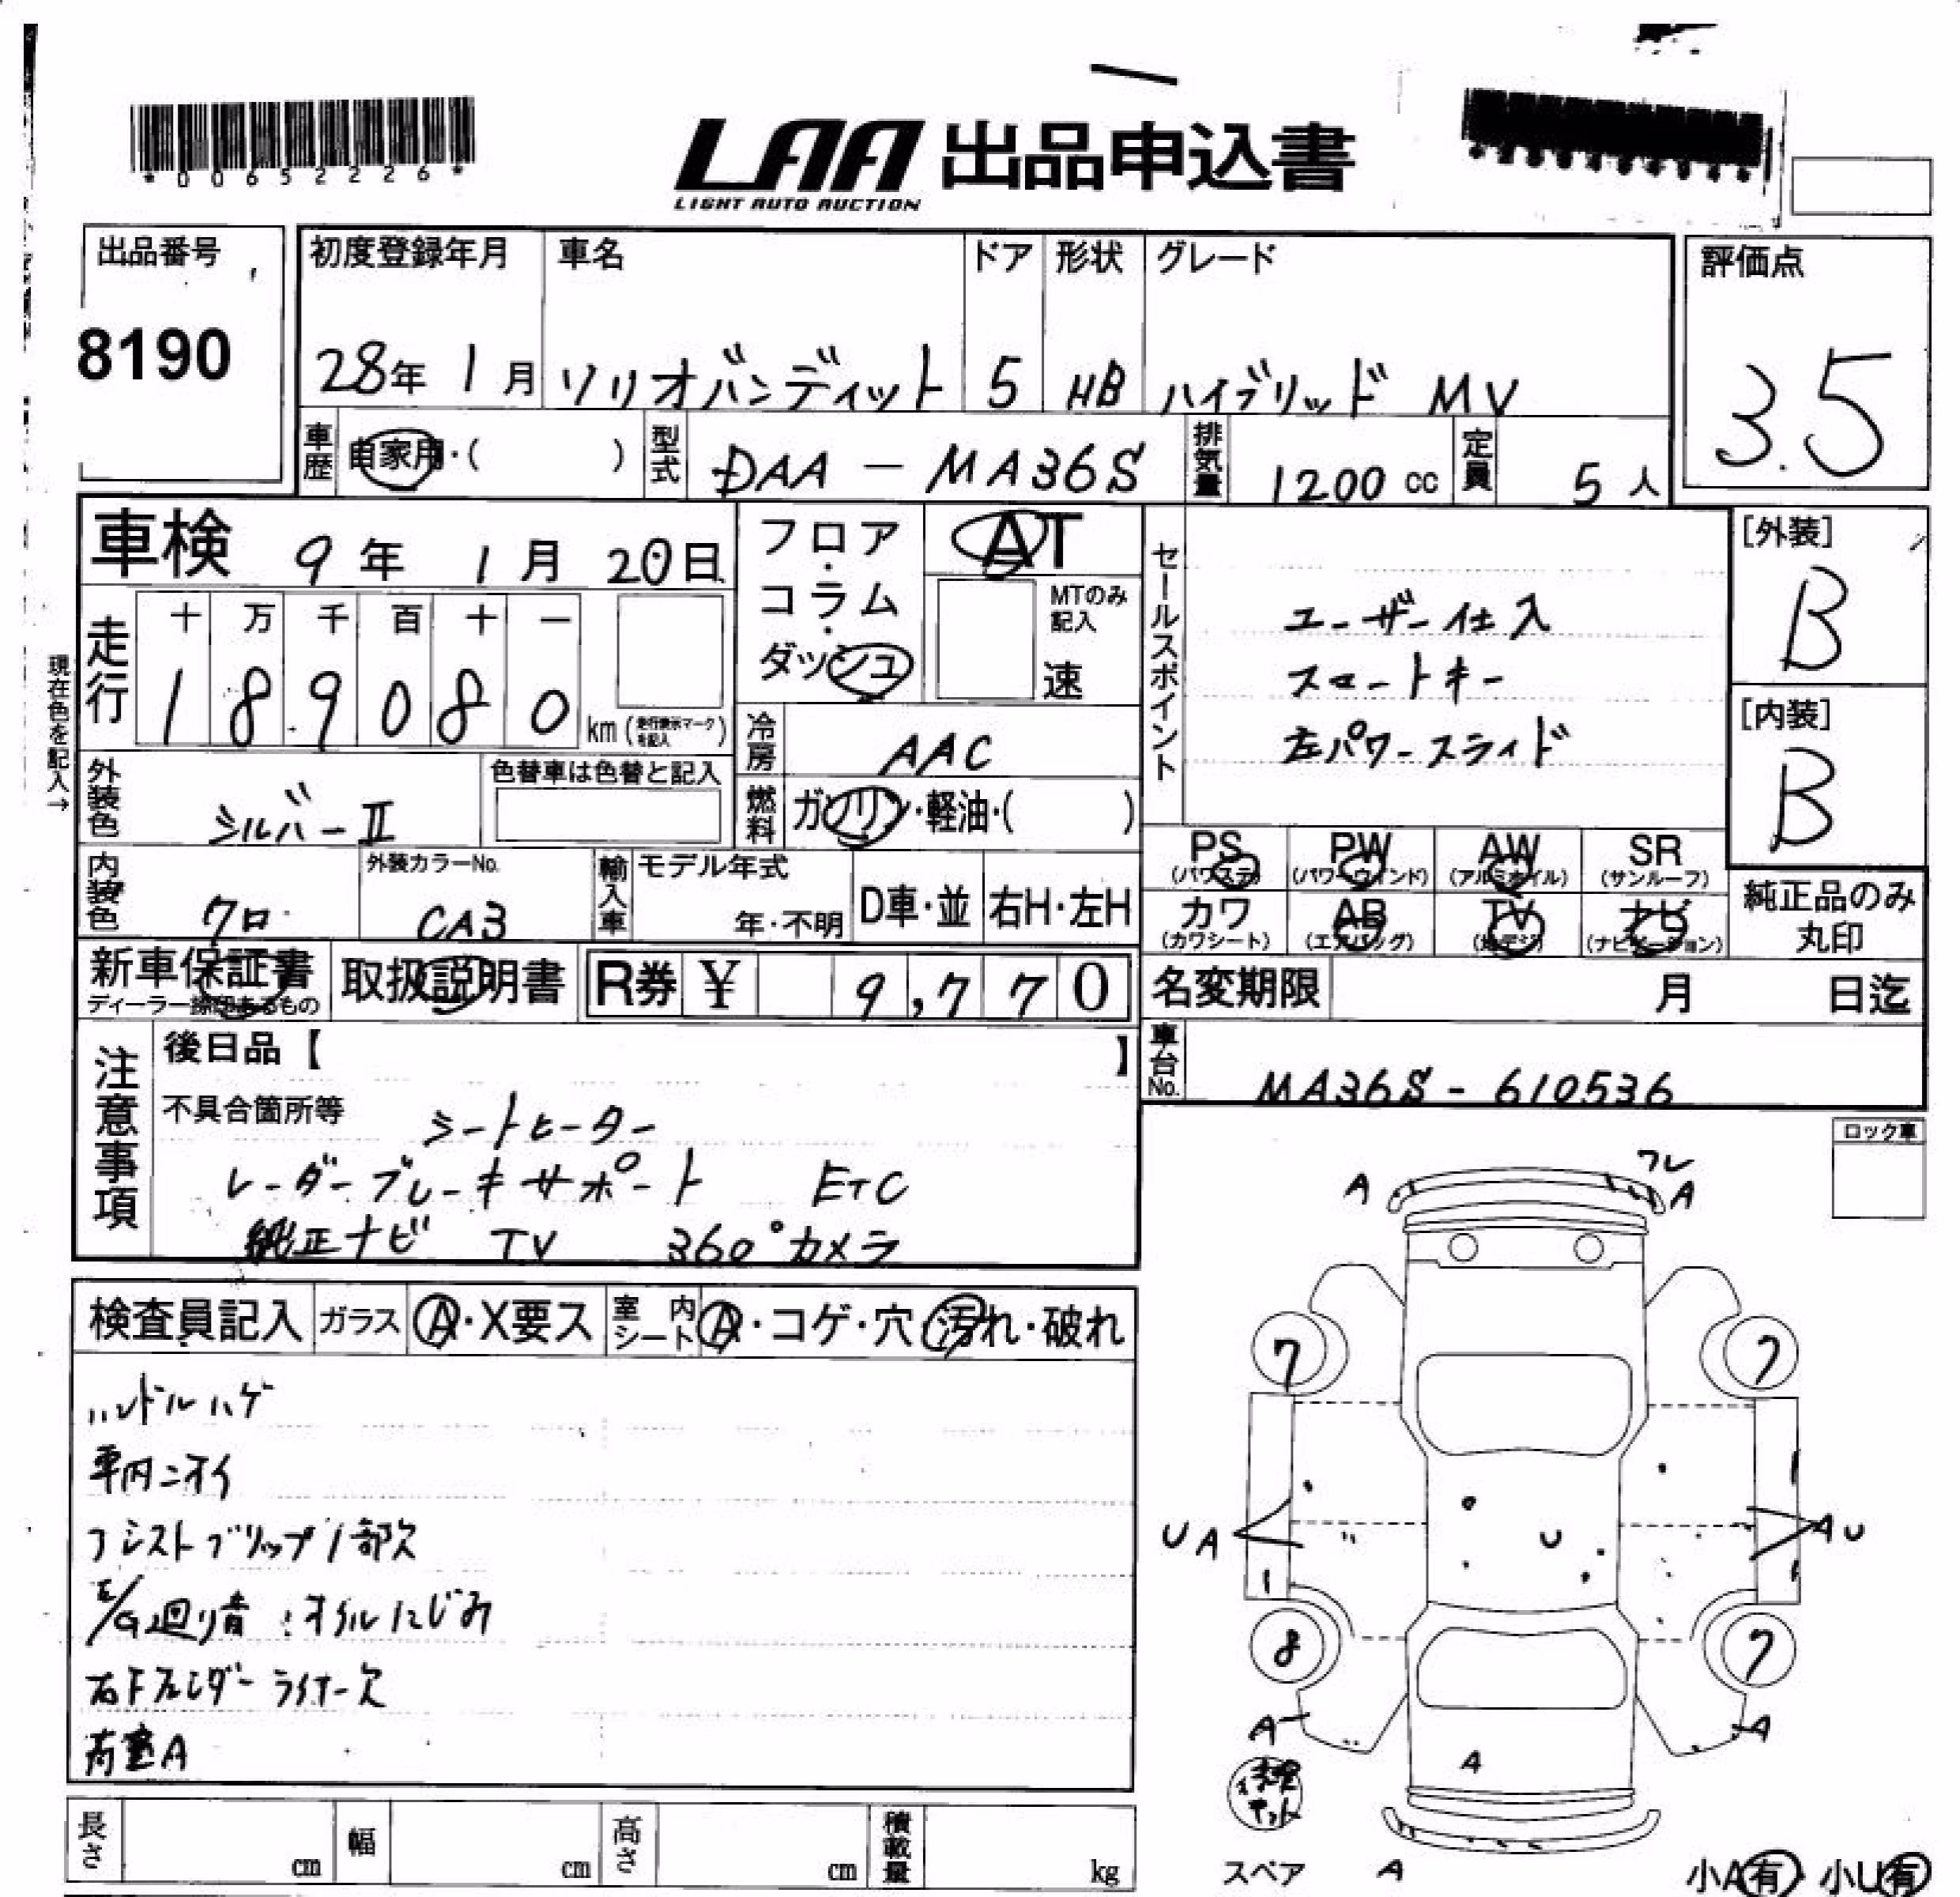 *00652226*
LAA 出品申込書
LIGHT AUTO AUCTION
出品番号
8190
初度登録年月 車名 ドア 形状 グレード
28年 1月 ソリオバンディット 5 HB ハイブリッド MV
評価点
3.5
車歴 自家用・( ) 型式 DAA-MA36S 排気量 1200cc 定員 5人
車検 9年 1月 20日
フロア・コラム・ダッシュ
AT
MTのみ記入
速
セールスポイント
ユーザー仕入
スマートキー
左パワースライド
[外装]
B
[内装]
B
現在色を記入→
走行 十 万 千 百 十 一
1 8 9 0 8 0 km(走行表示マークを記入)
冷房 AAC
外装色 シルバーII 色替車は色替と記入
燃料 ガソリン・軽油・( )
内装色 クロ 外装カラーNo. CA3
輸入車 モデル年式 年・不明 D車・並 右H・左H
PS (パワステ) PW (パワーウィンド) AW (アルミホイル) SR (サンルーフ)
カワ (カワシート) AB (エアバッグ) TV (地デジ) ナビ (ナビゲーション)
純正品のみ丸印
新車保証書 取扱説明書 R券 ¥ 9,770
名変期限 月 日迄
車台No. MA36S-610536
注意事項
後日品【 】
不具合箇所等 シートヒーター
レーダーブレーキサポート ETC
純正ナビ TV 360°カメラ
ロック車
検査員記入 ガラス A・X要ス 室内シート A・コゲ・穴・汚れ・破れ
ハンドルハゲ
車内ニオイ
アシストグリップ1部欠
E/G廻り音・オイルにじみ
右Fフェンダーライナー欠
荷室A
A ワレ A
7 7
UA U AU
8 7
A A
A
修理キット
スペア A
小A有・小U有
長さ cm 幅 cm 高さ cm 積載量 kg